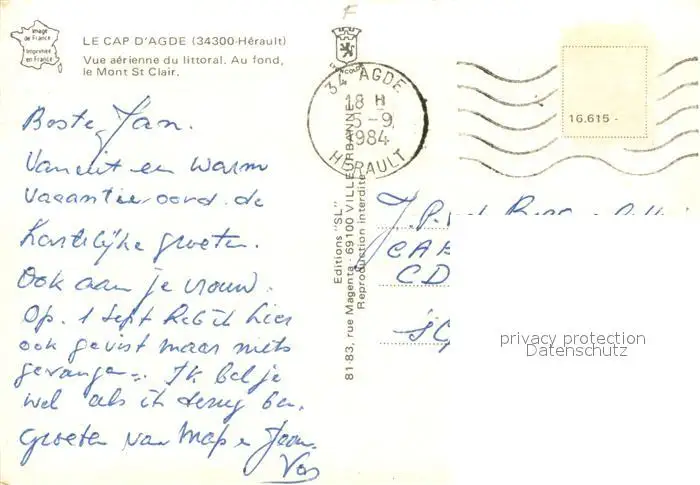 Image
de France
Imprimée
en France
LE CAP D'AGDE (34300-Hérault)
Vue aérienne du littoral. Au fond,
le Mont St Clair.
34 AGDE
18 H
5-9
1984
HERAULT
16.615 -
Beste Jan.
Vanuit een warm
vacantieoord de
hartelijke groeten.
Ook aan je vrouw.
Op. 1 Sept heb ik hier
ook gevist maar niets
gevangen. Ik bel je
wel als ik terug ben.
Groeten van en
Vos
Editions "SL"
81-83, rue Magenta - 69100 VILLEURBANNE
Reproduction interdite
J. P.
CD
privacy protection
Datenschutz